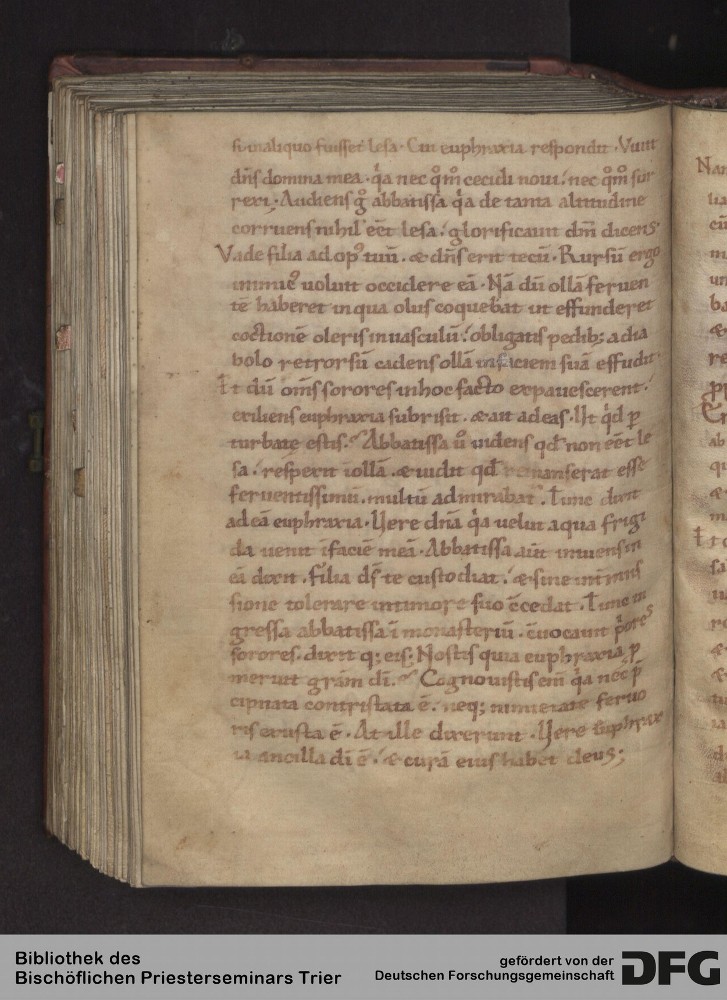 si in aliquo fuisset lesa · Cui euphraxia respondit · Viuit
dn̄s domina mea · q̇a nec qͦm̄ cecidi noui ⹎ nec qͦm̄ sur
rexi; Audiens gͦ abbatissa q̇a de tanta altitudine
corruens nihil eēt lesa ⹎ glorificauit dm̄ dicens;
Vade filia ad opꝰ tuū · & dn̄s erit tecū · Rursū ergo
inimicꝰ uoluit occidere eā · Nā dū ollā feruen
tē haberet in qua olus coquebat ut effunderet
coctionē oleris in uasculū ⹎ obligatis pedib; a dia
bolo retrorsū cadens ollā in faciem suā effudit·
Et dū om̄s sorores in hoc facto expauescerent ⹎
exiliens euphraxia subrisit · & ait ad eas · Ut q̇d ꝑ
turbate estis · Abbatissa ū uidens qd̄ non eēt le
sa ⹎ respexit ī ollā · & uidit qd̄ remanserat esse
feruentissimū · multū admirabat᷑ · Tunc dixit
ad eā euphraxia · Vere dn̄a q̇a uelut aqua frigi
da uenit ī faciē meā · Abbatissa aūt intuens in
eā dixit · Filia ds̄ te custodiat ⹎ & sine intermis
sione tolerare in timore suo c̄cedat · Tunc in
gressa abbatissa ī monasteriū · c̄uocauit p̄ores
sorores · dixit q; eis; Nostis quia euphraxia ꝑ
meruit grām dī · Cognouistis eni̅ q̇a nec p̄
cipitata contristata ē · neq; nimietate feruo
ris exusta ē · At ille dixerunt · Vere euphrax
ia ancilla dī ē ⹎ & curā eius habet deus;
Bibliothek des
Bischöflichen Priesterseminars Trier
gefördert von der
Deutschen Forschungsgemeinschaft
DFG